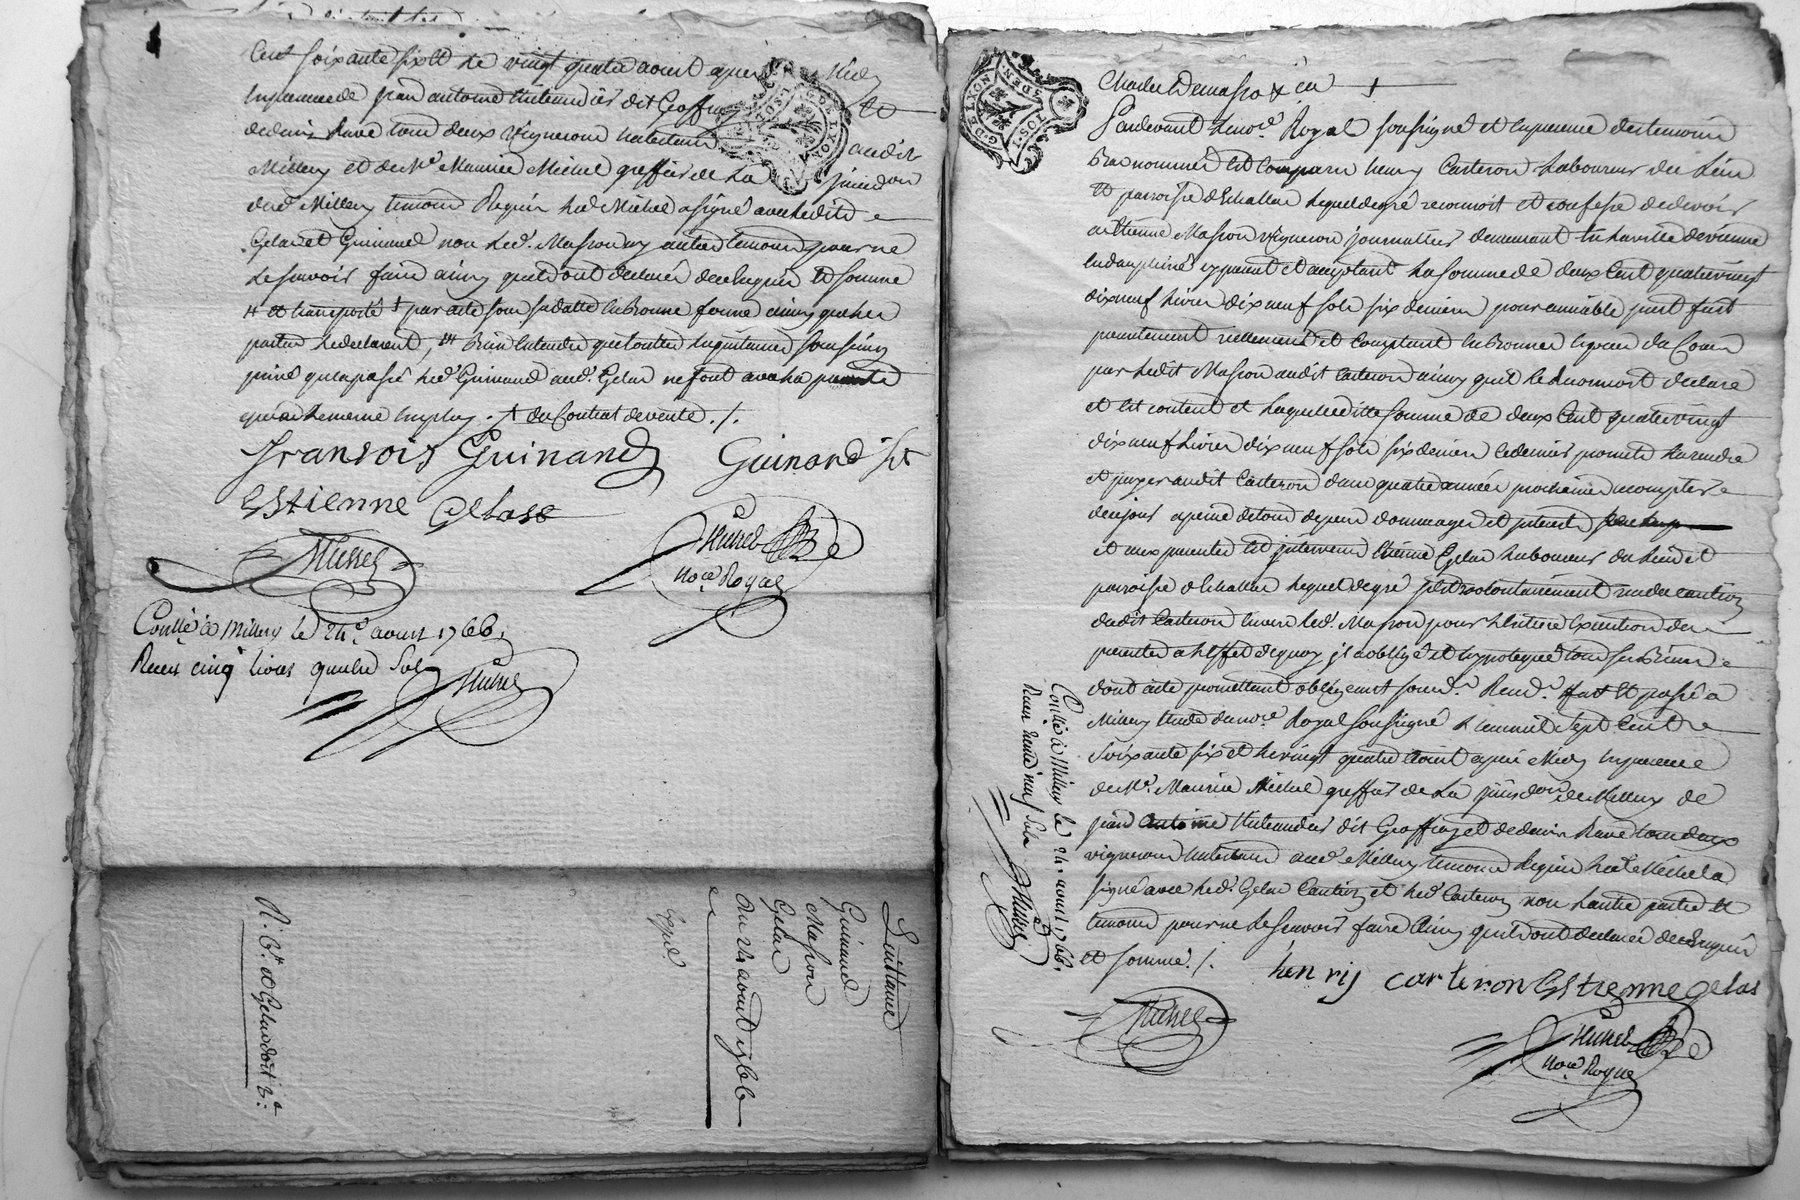 Cent soixante six et le vingt quatre aoust apres Midy
En presence de jean antoine dit Geoffray et
denis Rave tous deux vignerons habitants audit
Millery et de Me. Maurice Michel greffier de La jurisdon
dud. Millery temoins Requis led. Michel a signé avec ledit
Gelas et Guinand non led. Masson ny autre temoins pour ne
Le scavoir faire ainsy qu'ils ont declaré de ce Enquis et sommé
et transporté par acte sous sa datte En Bonne forme ainsy que les
parties Le declarent, Bien Entendu que toutes quittances sous seing
privé qu'a passé led. Guinand aud. Gelas ne font avec la presente
qu'un Meme Employ. du Contrat de vente ./.
fransois Guinand Guinand fils
Estienne Gelas
Michel
nore. Royal
Conllé à Millery le 24e. aoust 1766.
Receu cinq livres quatre sols
Quittance
Guinand
Masson
Gelas
Du 24 aoust 1766
Expé
G. DE LYON
Pardevant Le nore. Royal soussigné et En presence des temoins
Bas nommés Est Comparu henry Carteron Laboureur du Lieu
et parroisse d'Echallas Lequel de gré reconnoit et confesse de devoir
a Etienne Masson vigneron journallier demeurant En La ville de vienne
En dauphiné cy present et acceptant La somme de deux Cent quatre vingt
dix neuf livres dix neuf sols six deniers pour amiable prest fait
presentement reellement et Comptant En Bonnes Especes du Cours
par Ledit Masson audit Carteron ainsy qu'il Le reconnoit declare
et Est content et Laquelle ditte somme de deux Cent quatre vingt
dix neuf livres dix neuf sols six deniers ce dernier promet La rendre
et payer audit dans quatre années prochaines a compter
de ce jour a peine de tous depens dommages et interest
et aux presentes Est intervenu Etienne Gelas Laboureur du Lieu et
parroisse d'Echallas Lequel de gré s'est volontairement rendu caution
dudit Carteron Envers led. Masson pour L'Entiere Execution des
presentes a L'effet de quoy il a obligé et hypotequé tous ses Biens
dont acte promettant obligeant soumt. Renont. fait et passé a
Millery Etude du nore. Royal soussigné L'an mil sept Cent
Soixante six et le vingt quatre aoust apres Midy En presence
de Me. Maurice Michel greffier de La jurisdon de Millery de
jean antoine dit Geoffray et de denis Rave tous deux
vignerons habitants aud. Millery temoins Requis led. Michel a
signé avec led. Gelas Caution et led. Carteron non L'autre partie et
temoins pour ne Le scavoir faire Ainsy qu'ils ont declaré de ce Enquis
et sommé ./.
henrij carteron Estienne gelas
Michel
nore. Royal
Conllé à Millery le 24. aoust 1766.